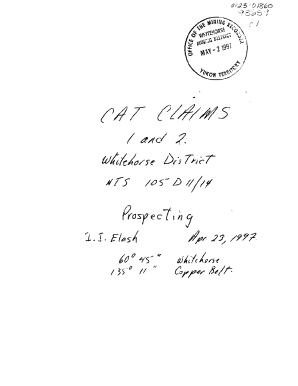 0123-01860
OFFICE OF THE MINING RECORDER
WHITEHORSE
MINING DISTRICT
MAY -2 1997
YUKON TERRITORY
CAT CLAIMS
1 and 2.
Whitehorse District
NTS 105 D 11/14
Prospecting
I.I. Elash Apr 23, 1997
60° 45" Whitehorse
135° 11" Copper Belt.